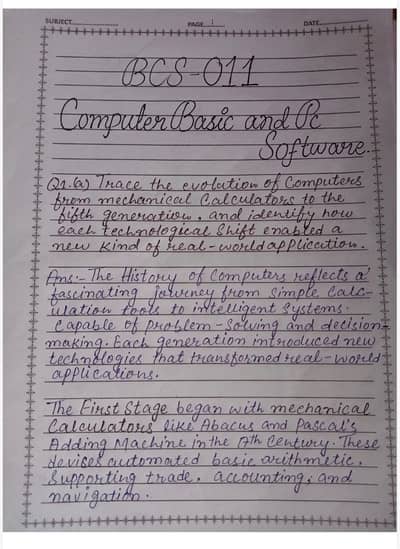 SUBJECT
PAGE 1
DATE
BCS-011
Computer Basic and Pc
Software.
Q1.(a) Trace the evolution of Computers
from mechanical Calculators to the
fifth generation, and identify how
each technological Shift enabled a
new kind of real-world application.
Ans:- The History of Computers reflects a
fascinating journey from Simple Calc-
ulation tools to intelligent Systems.
Capable of problem-Solving and decision-
making. Each generation introduced new
technologies that transformed real-world
applications.
The First Stage began with mechanical
Calculators like Abacus and Pascal's
Adding Machine in the 17th Century. These
devises automated basic arithmetic,
Supporting trade, accounting, and
navigation.